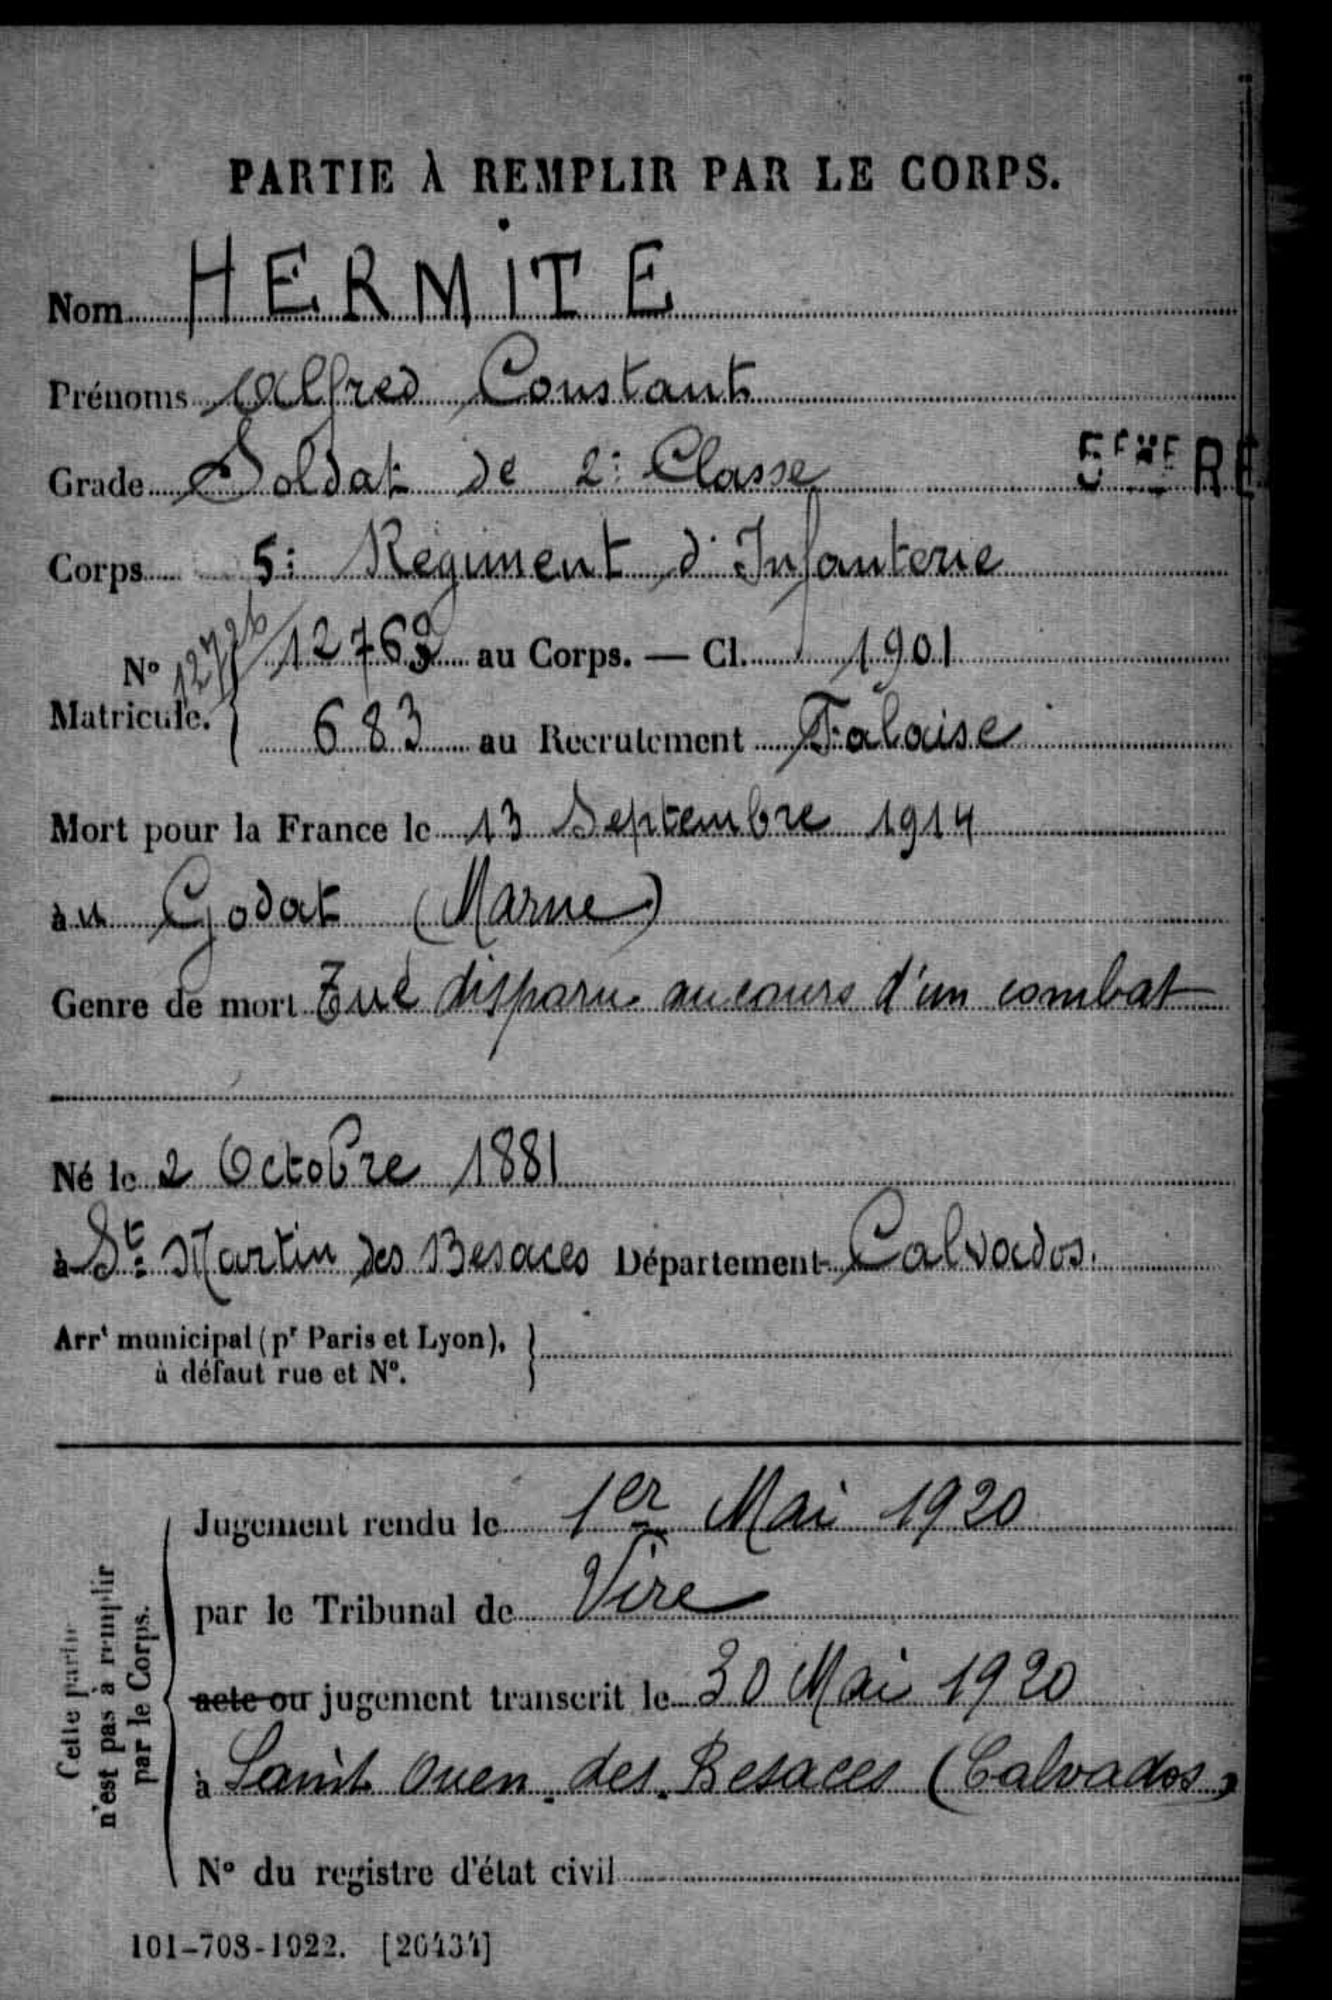 PARTIE À REMPLIR PAR LE CORPS.
Nom HERMITE
Prénoms Alfred Constant
Grade Soldat de 2e Classe
5EME RE
Corps 5e Régiment d'Infanterie
No Matricule. 12763 au Corps. — Cl. 1901
683 au Recrutement Falaise
Mort pour la France le 13 Septembre 1914
au Godat (Marne)
Genre de mort Tué disparu au cours d'un combat
Né le 2 Octobre 1881
à St Martin des Besaces Département Calvados.
Arrt municipal (pr Paris et Lyon),
à défaut rue et No.
Cette partie
n'est pas à remplir
par le Corps.
Jugement rendu le 1er Mai 1920
par le Tribunal de Vire
acte ou jugement transcrit le 30 Mai 1920
à Saint Ouen des Besaces (Calvados)
No du registre d'état civil
101-708-1922. [26434]